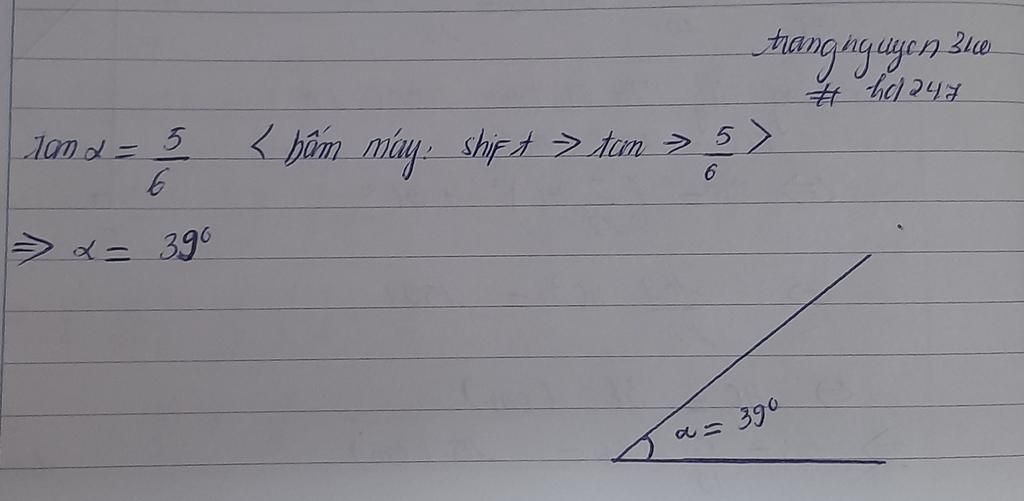 trangnguyen3110
# hd247
tan α = 5/6 < bấm máy: shift ⇒ tan ⇒ 5/6 >
⇒ α = 39°
α = 39°